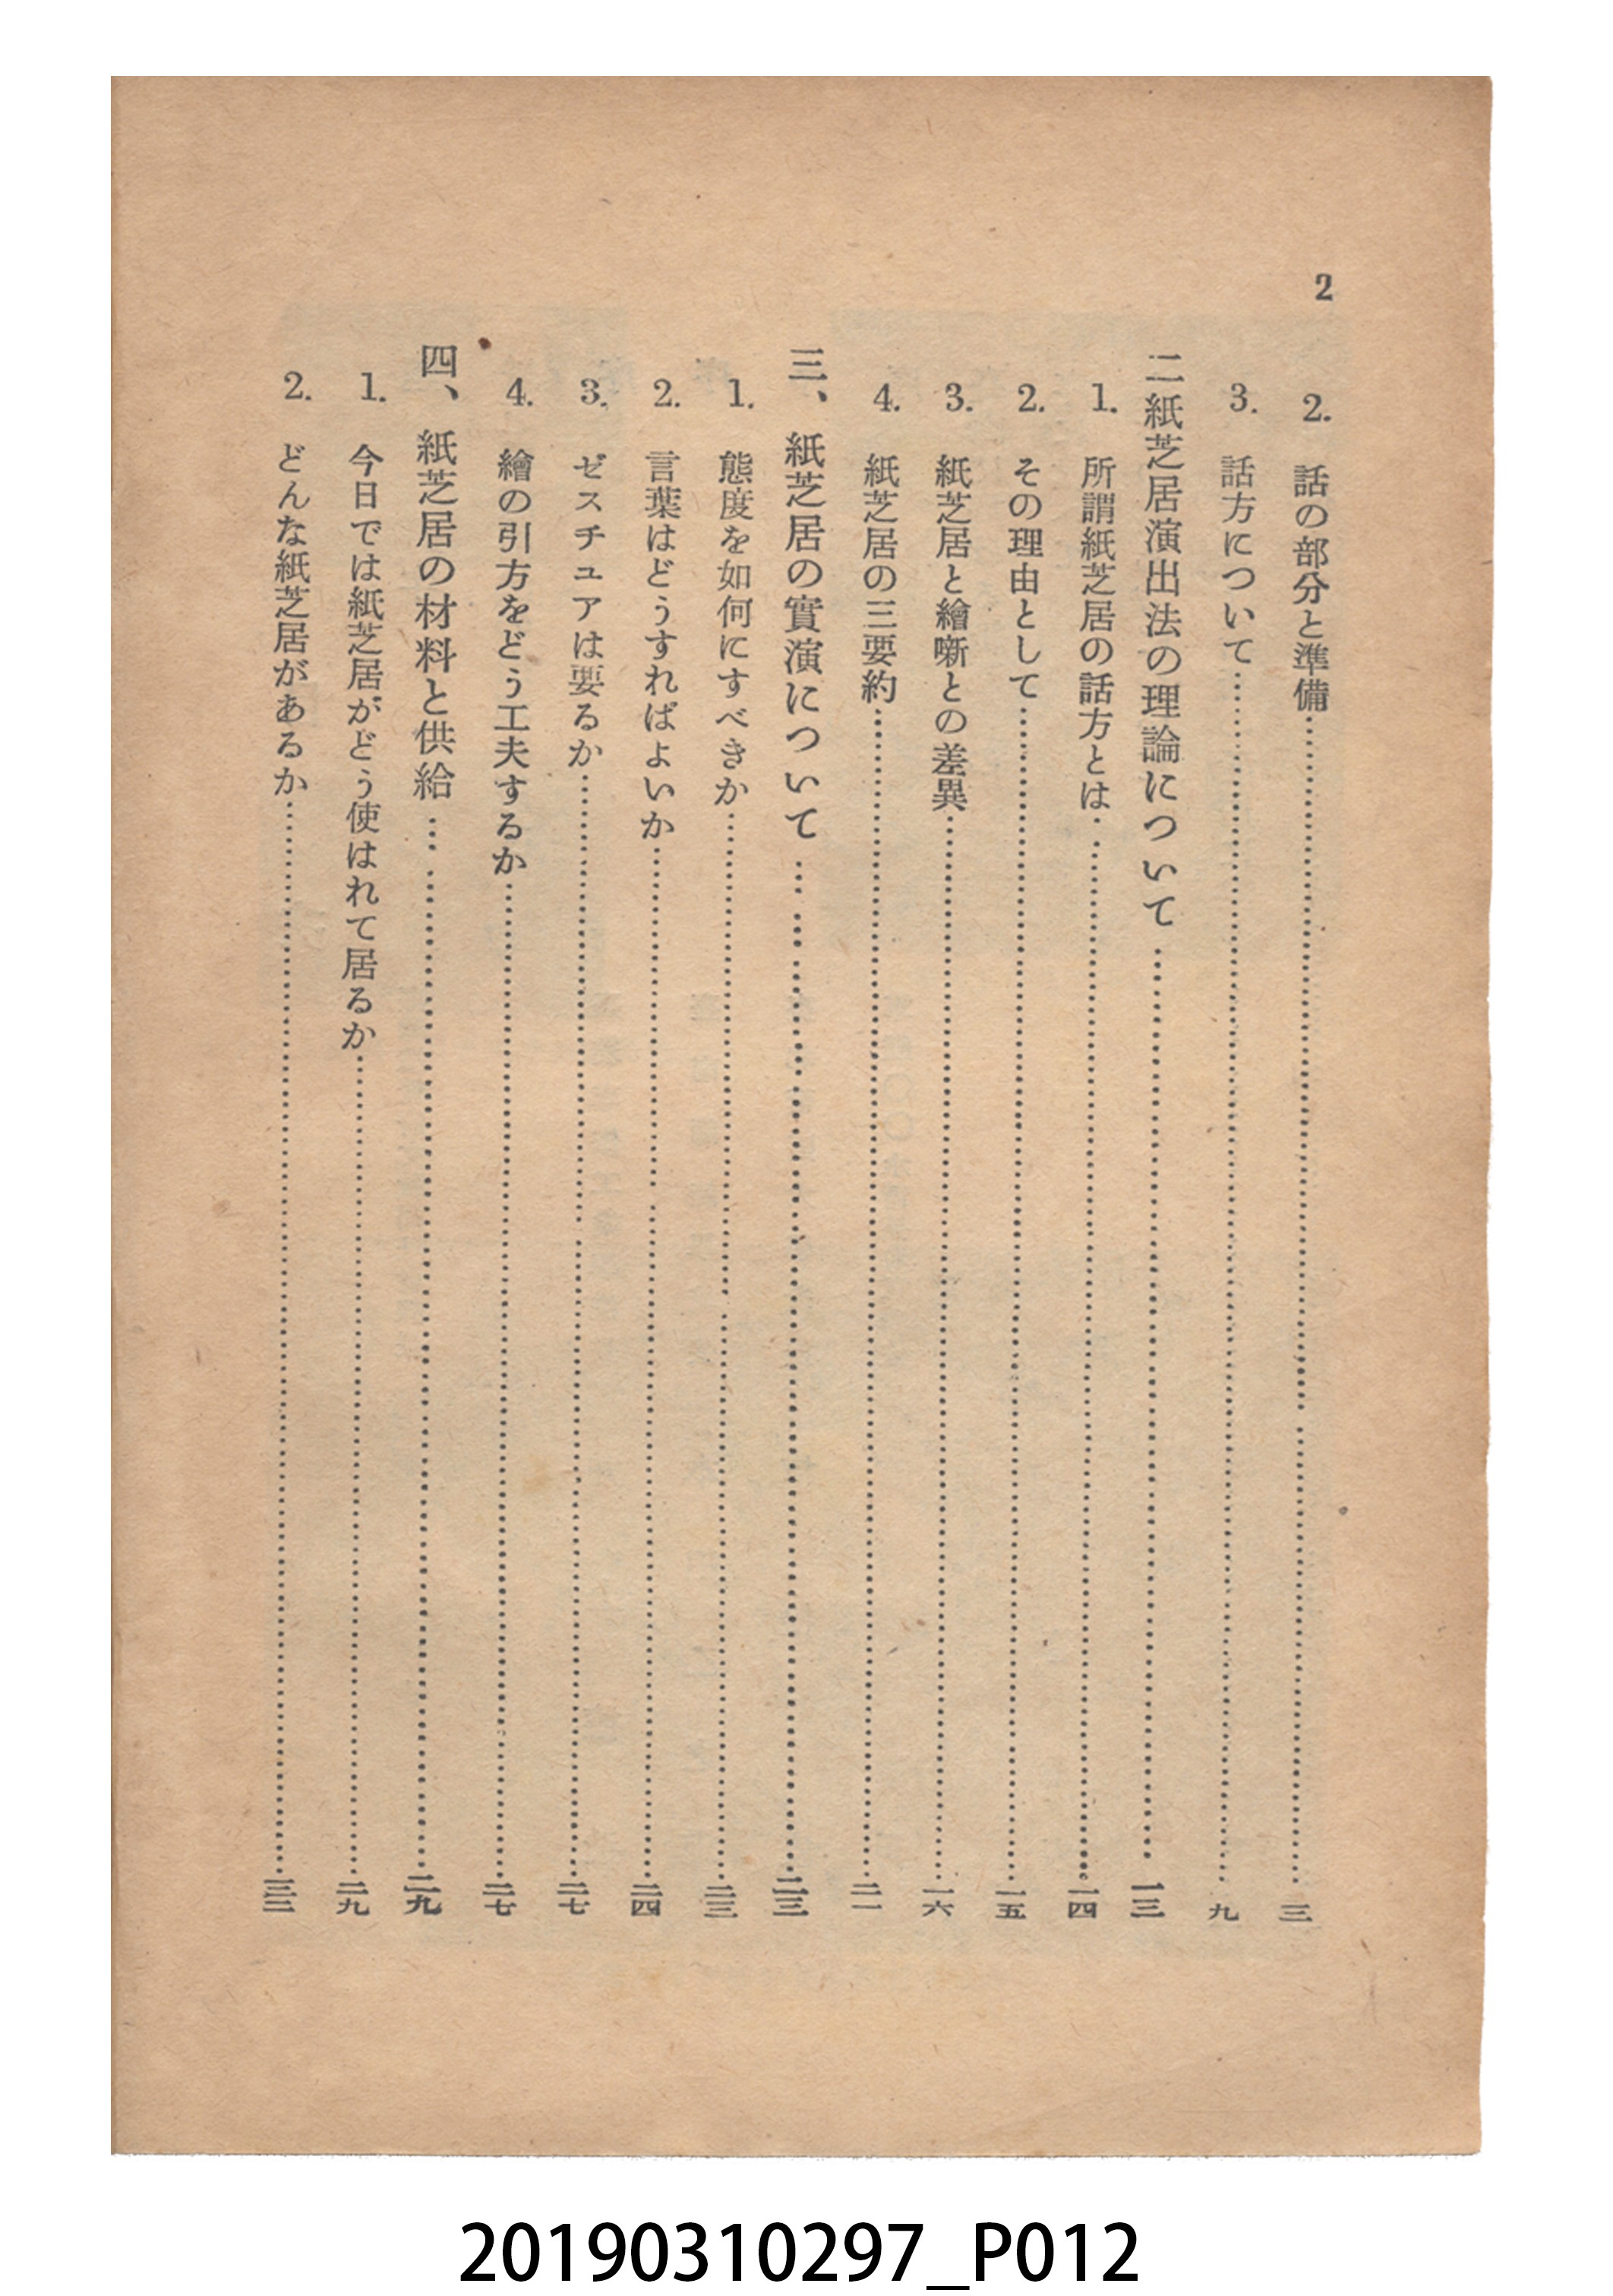 2
2. 話の部分と準備……三
3. 話方について……九
二 紙芝居演出法の理論について……一三
1. 所謂紙芝居の話方とは……一四
2. その理由として……一五
3. 紙芝居と繪噺との差異……一六
4. 紙芝居の三要約……二一
三、紙芝居の實演について……二三
1. 態度を如何にすべきか……二三
2. 言葉はどうすればよいか……二四
3. ゼスチュアは要るか……二七
4. 繪の引方をどう工夫するか……二七
四、紙芝居の材料と供給……二九
1. 今日では紙芝居がどう使はれて居るか……二九
2. どんな紙芝居があるか……三三
20190310297_P012